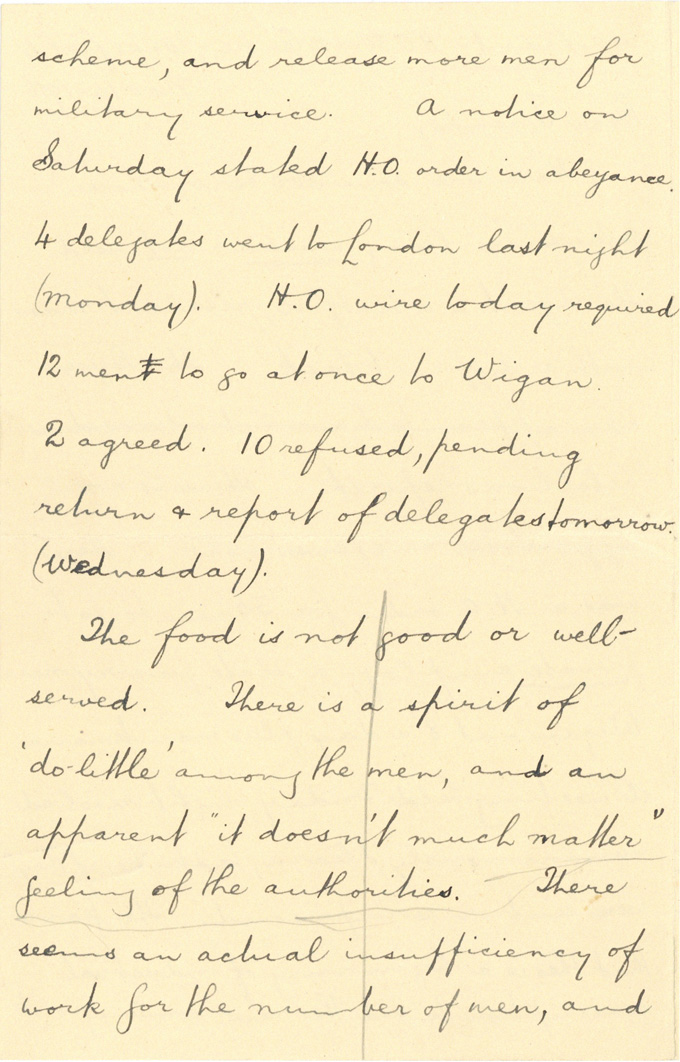 scheme, and release more men for
military service. A notice on
Saturday stated H.O. order in abeyance.
4 delegates went to London last night
(Monday). H.O. wire today required
12 men to go at once to Wigan.
2 agreed. 10 refused, pending
return & report of delegates tomorrow.
(Wednesday).
The food is not good or well-
served. There is a spirit of
'do-little' among the men, and an
apparent "it doesn't much matter"
feeling of the authorities. There
seems an actual insufficiency of
work for the number of men, and